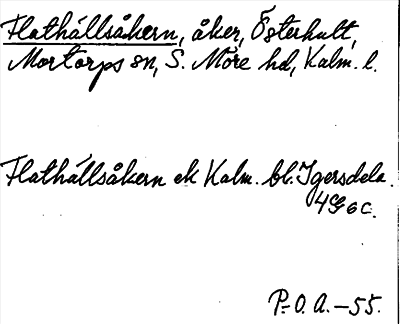 Flathällsåkern, åker, Österhult,
Mortorps sn, S. Möre hd, Kalm. l.
Flathällsåkern ek Kalm. bl. Igersdela.
4G6c.
P.O.A.-55.